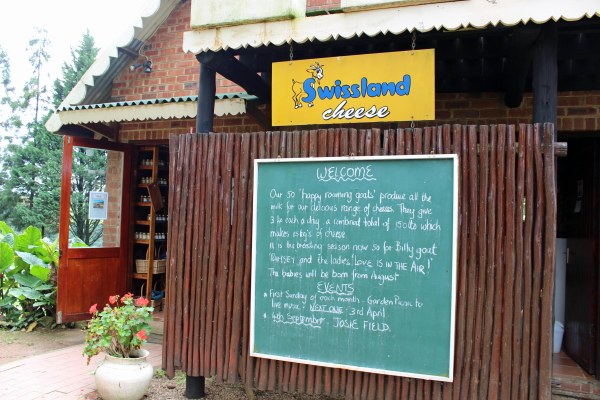 Swissland
cheese
WELCOME
Our 50 'happy roaming goats' produce all the
milk for our delicious range of cheeses. They give
3 litr each a day: a combined total of 150 litr which
makes 15 kg's of cheese.
It is the breeding season now so for Billy goat
and the ladies 'LOVE IS IN THE AIR!'
The babies will be born from August
EVENTS
* First Sunday of each month. Garden Picnic to
live music. NEXT ONE: 3rd April
* 4th September - JOSIE FIELD.